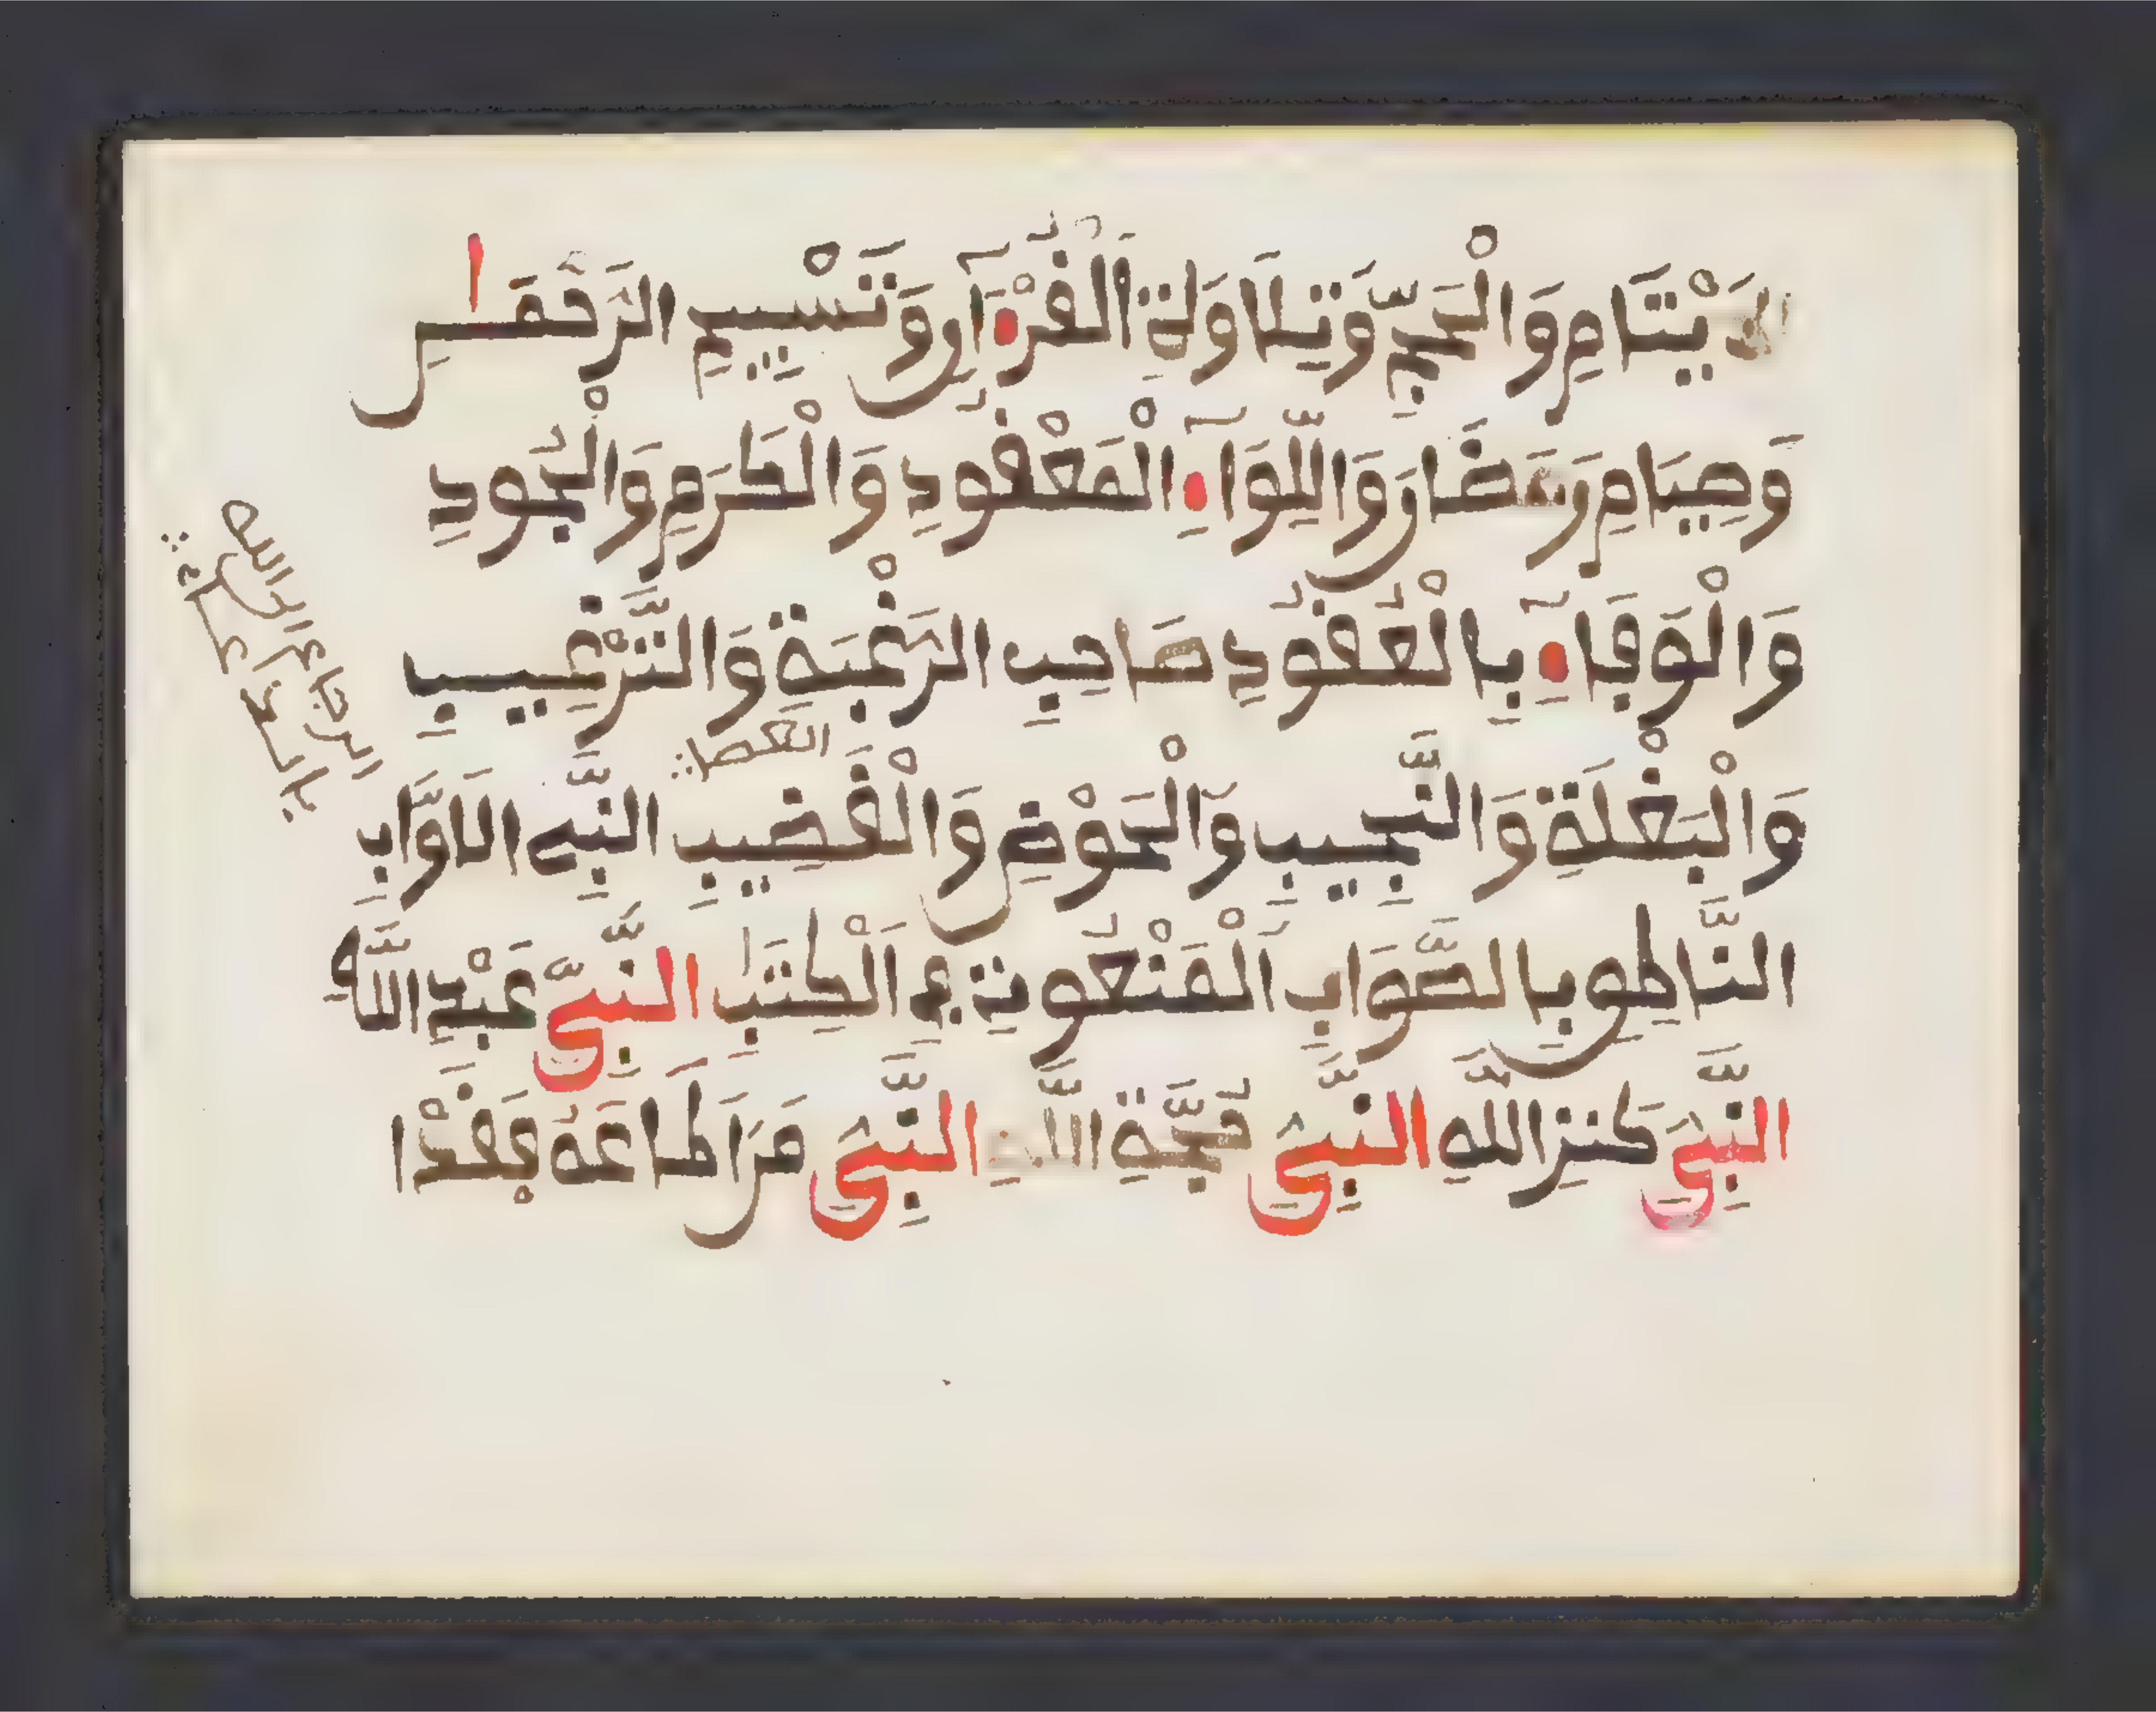 الَايْتَامِ وَالْحَجِّ وَتِلَاوَةِ الْقُرْءَانِ وَتَسْبِيحِ الرَّحْمَٰنِ
وَصِيَامِ رَمَضَانَ وَاللِّوَآءِ الْمَعْقُودِ وَالْكَرَمِ وَالْجُودِ
وَالْوَفَآءِ بِالْعُقُودِ صَاحِبِ الرَّغْبَةِ وَالتَّرْغِيبِ
وَالْبَغْلَةِ وَالنَّجِيبِ وَالْحَوْضِ وَالْقَضِيبِ النَّبِيِّ الَاوَّابِ
العصا
النَّاطِقِ بِالصَّوَابِ الْمَنْعُوتِ فِي الْكِتَٰبِ النَّبِيِّ عَبْدِ اللَّهِ
النَّبِيِّ كَنْزِ اللَّهِ النَّبِيِّ حُجَّةِ اللَّهِ النَّبِيِّ مَنَ اَطَاعَهُ فَقَدْ ا
الرجاع الى الله